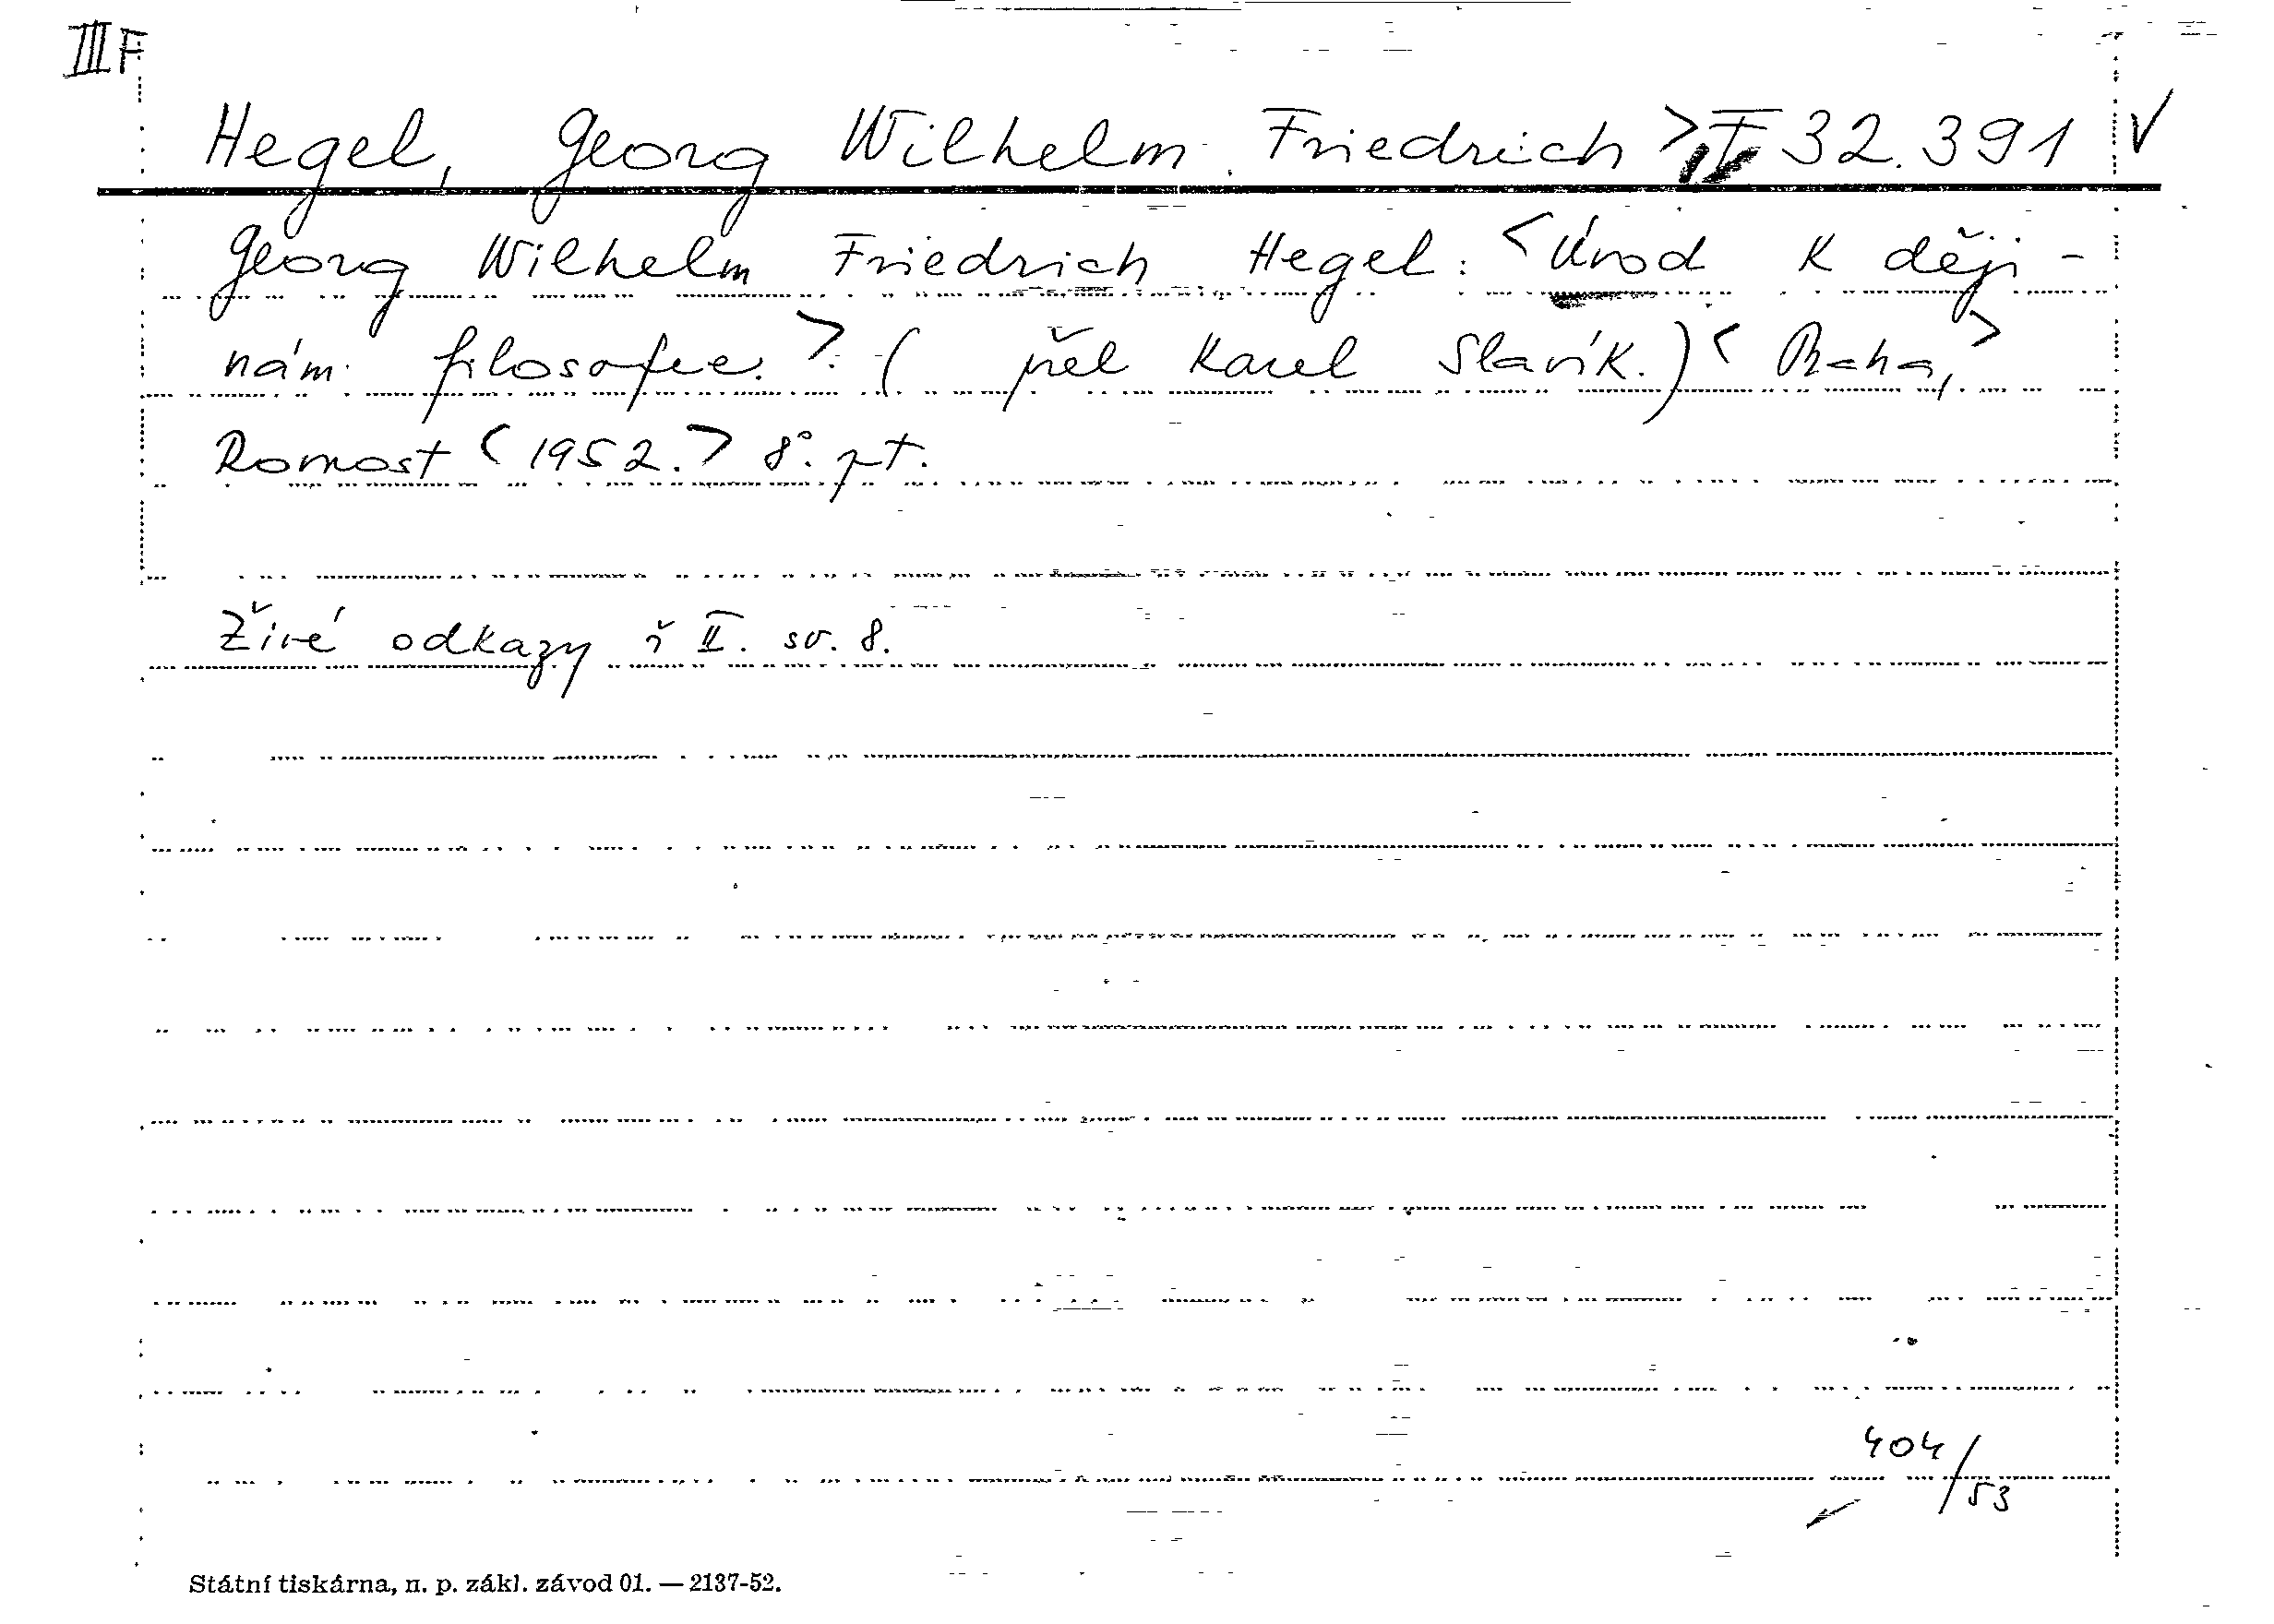 III F
Hegel, Georg Wilhelm Friedrich > II 32.391 V
Georg Wilhelm Friedrich Hegel: <Úvod k ději-
nám filosofie.> (přel Karel Slavík.) < Praha,>
Rovnost <1952.> 8°. pt.
Živé odkazy ř II. sv. 8.
404/53
Státní tiskárna, n. p. zákl. závod 01. — 2137-52.